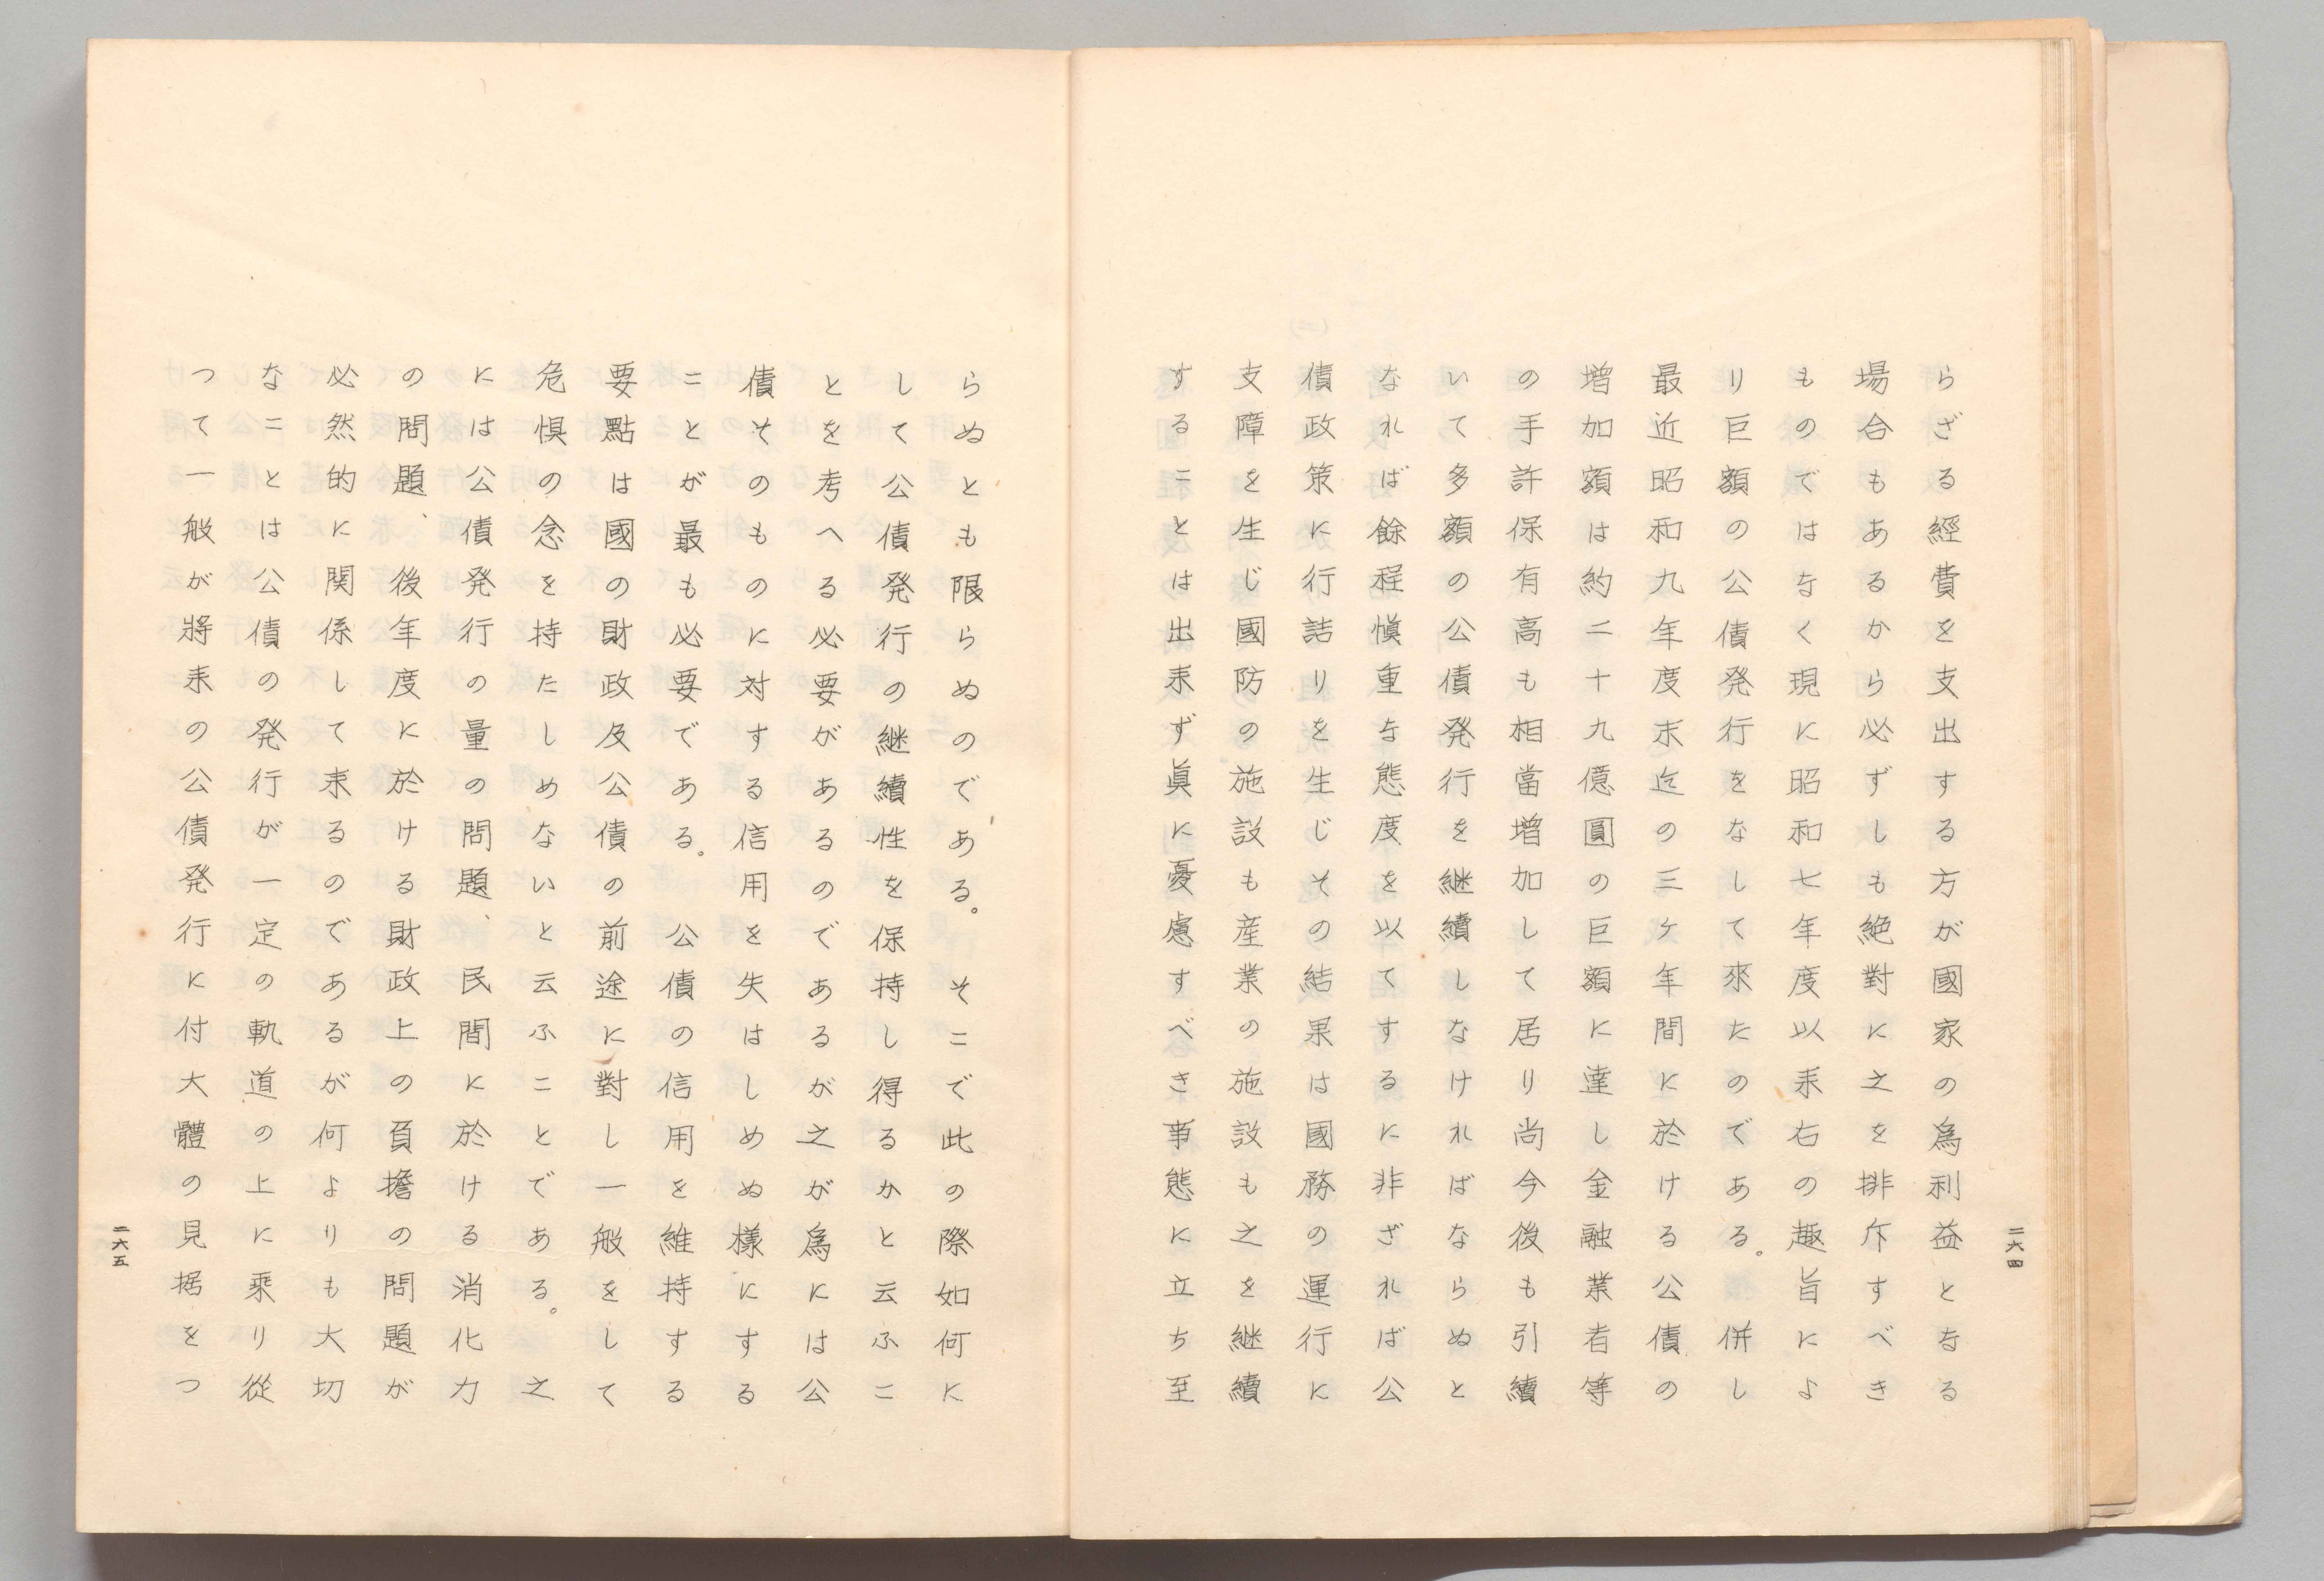 二六四
らざる經費を支出する方が國家の爲利益となる
場合もあるから必ずしも絶對に之を排斥すべき
ものではなく現に昭和七年度以来右の趣旨によ
り巨額の公債発行をなして來たのである。併し
最近昭和九年度末迄の三ヶ年間に於ける公債の
増加額は約二十九億圓の巨額に達し金融業者等
の手許保有高も相當増加して居り尚今後も引續
いて多額の公債発行を継續しなければならぬと
なれば餘程愼重な態度を以てするに非ざれば公
債政策に行詰りを生じその結果は國務の運行に
支障を生じ國防の施設も産業の施設も之を継續
することは出来ず眞に憂慮すべき事態に立ち至
らぬとも限らぬのである。そこで此の際如何に
して公債発行の継續性を保持し得るかと云ふこ
とを考へる必要があるのであるが之が爲には公
債そのものに対する信用を失はしめぬ樣にする
ことが最も必要である。公債の信用を維持する
要點は國の財政及公債の前途に對し一般をして
危惧の念を持たしめないと云ふことである。之
には公債発行の量の問題、民間に於ける消化力
の問題、後年度に於ける財政上の負擔の問題が
必然的に関係して来るのであるが何よりも大切
なことは公債の発行が一定の軌道の上に乘り從
つて一般が將来の公債発行に付大體の見据をつ
二六五